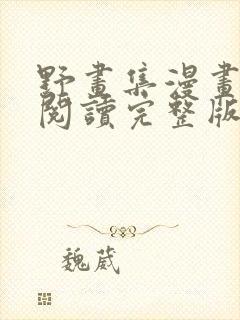 野畫集漫畫
閱讀完整版
魏葳